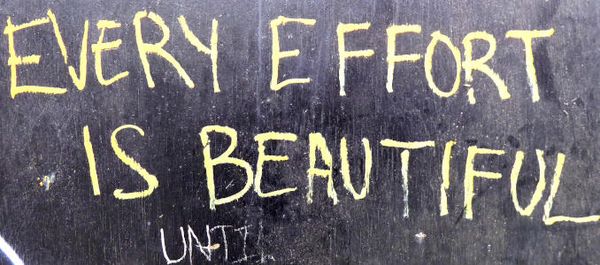 EVERY EFFORT
IS BEAUTIFUL
UNTIL